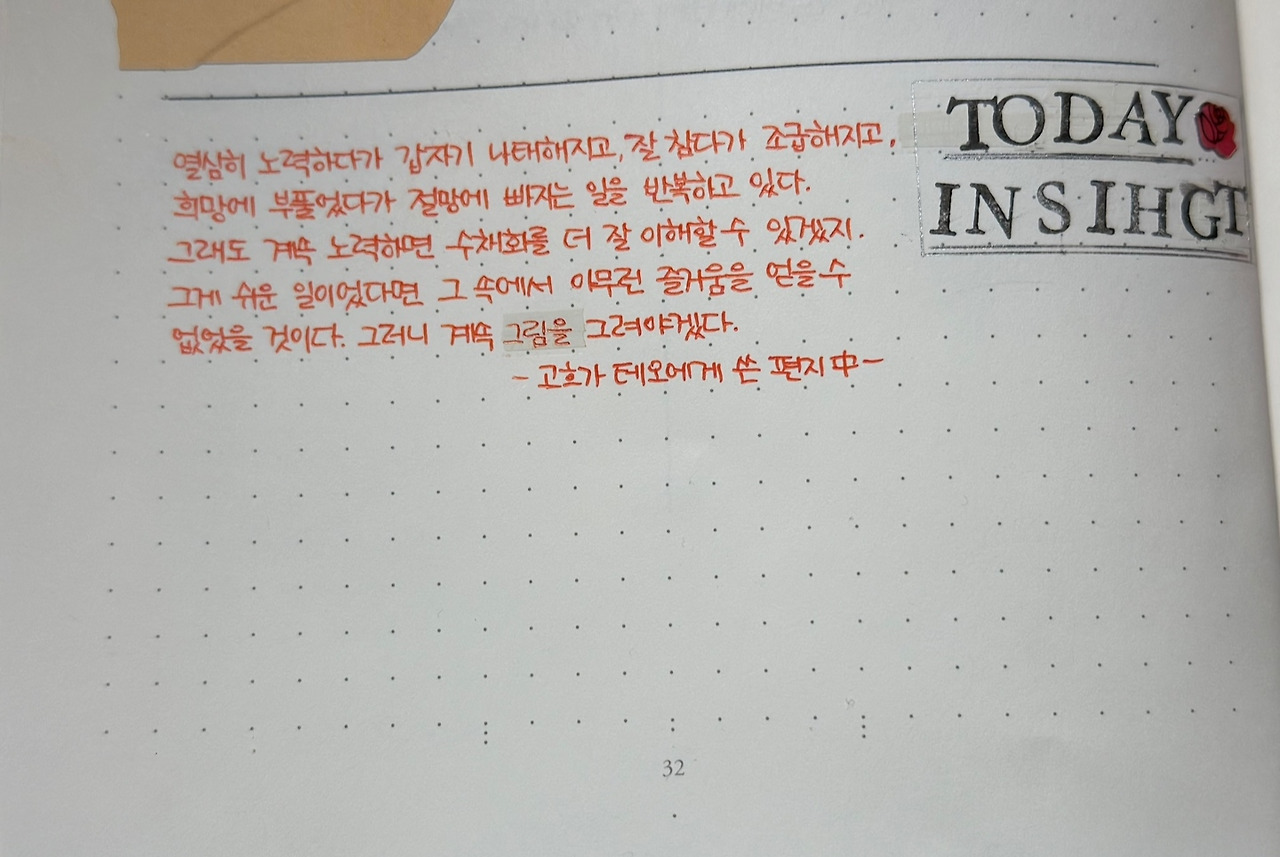 열심히 노력하다가 갑자기 나태해지고, 잘 참다가 조급해지고,
희망에 부풀었다가 절망에 빠지는 일을 반복하고 있다.
그래도 계속 노력하면 수채화를 더 잘 이해할 수 있겠지.
그게 쉬운 일이었다면 그 속에서 아무런 즐거움을 얻을 수
없었을 것이다. 그러니 계속 그림을 그려야겠다.
- 고흐가 테오에게 쓴 편지 中 -
TODAY
INSIHGT
32